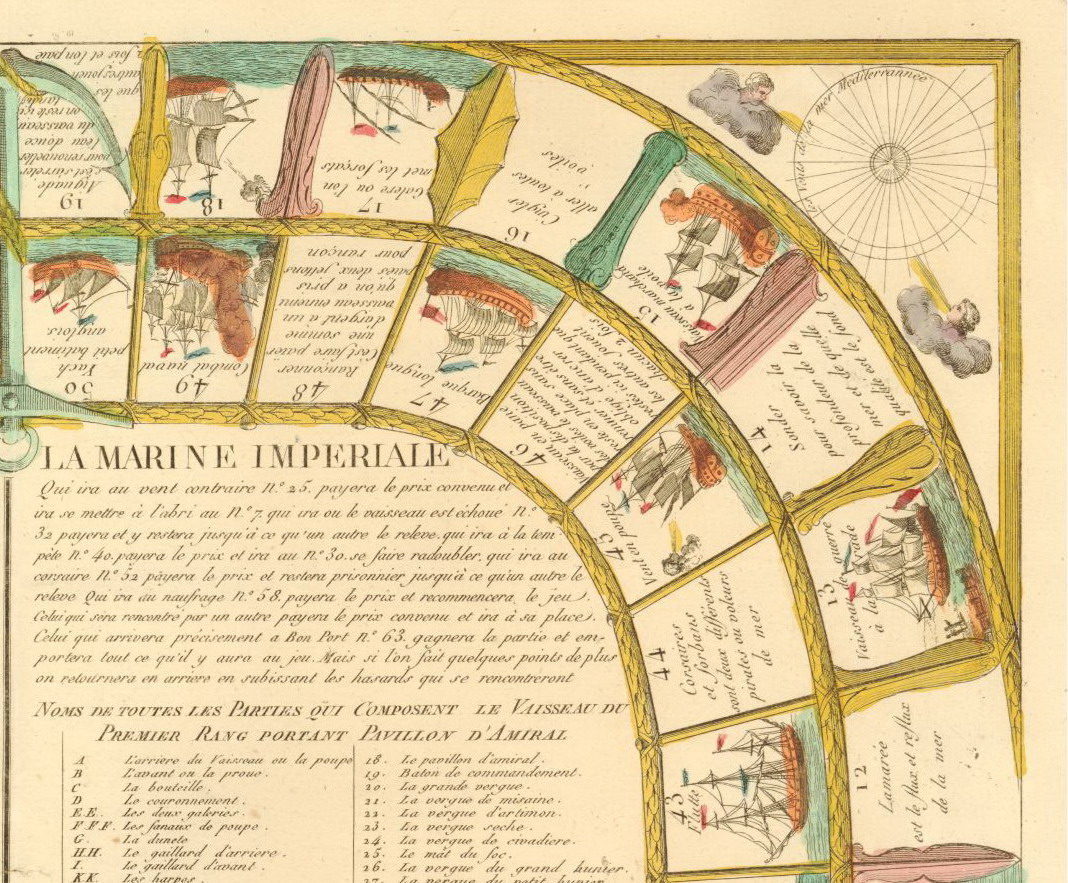 les Vents de la mer Mediterrannée
12
Lamarée
est le flux et reflux
de la mer
13
Vaisseau de guerre
à la rade
14
Sonder la
pour savoir la
profondeur de la
mer et de quelle
qualité est le fond
15
Vaisseau marchand
a la voile
16
Cingler
aller à toutes
voiles
17
Galere ou l'on
met les forçats
18
19
Aiguade
c'est s'arreter
pour renouveller
l'eau douce
du vaisseau
on reste ici
tandis
que les
autres jouent
2 fois et l'on paie
43
Flute
44
Corsaires
et forbans
sont deux différents
pirates ou voleurs
de mer
45
Vent en poupe
46
Vaisseau en pane
47
Barque longue
48
Rançonner
C'est faire païer
une somme
d'argent a un
vaisseau ennemi
qu'on a pris
païés deux jettons
pour rançon
49
Combat naval
50
Yach
petit batiment
anglois
LA MARINE IMPERIALE
Qui ira au vent contraire N.º 25. payera le prix convenu et
ira se mettre à l'abri au N.º 7. qui ira ou le vaisseau est échoué N.º
32 payera et y restera jusqu'à ce qu'un autre le releve, qui ira à la tem-
pête N.º 40. payera le prix et ira au N.º 30. se faire radoubler, qui ira au
corsaire N.º 52 payera le prix et restera prisonnier jusqu'à ce qu'un autre le
releve Qui ira au naufrage N.º 58. payera le prix et recommencera le jeu.
Celui qui sera rencontré par un autre payera le prix convenu et ira à sa place.
Celui qui arrivera précisement a Bon Port N.º 63. gagnera la partie et em-
portera tout ce qu'il y aura au jeu. Mais si l'on fait quelques points de plus
on retournera en arriere en subissant les hasards qui se rencontreront
NOMS DE TOUTES LES PARTIES QUI COMPOSENT LE VAISSEAU DU
PREMIER RANG PORTANT PAVILLON D'AMIRAL
A L'arriere du Vaisseau ou la poupe
B L'avant ou la proue.
C La bouteille.
D Le couronnement.
E.E. Les deux galeries.
F.F.F. Les fanaux de poupe.
G. La dunete
H.H. Le gaillard d'arriere.
I. Le gaillard d'avant.
K.K. Les harpes.
18. Le pavillon d'amiral.
19. Baton de commandement.
20. La grande vergue.
21. La vergue de misaine.
22. La vergue d'artimon.
23. La vergue seche.
24. La vergue de civadiere.
25. Le mât du foc.
26. La vergue du grand hunier.
27. La vergue du petit hunier.